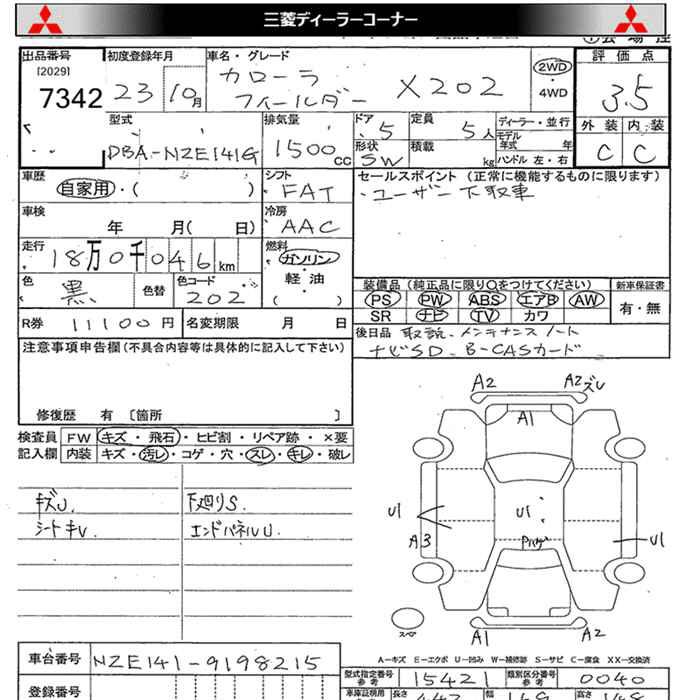 三菱ディーラーコーナー
出品番号 [2029] 7342
初度登録年月 23 10月
車名・グレード カローラ フィールダー X202
2WD ・4WD
評価点 3.5
外装 内装
C C
型式 DBA-NZE141G
排気量 1500 CC
ドア 5 定員 5人
形状 SW 積載 kg
ディーラー・並行
モデル年式 年
ハンドル 左・右
車歴 自家用・( )
シフト FAT
セールスポイント (正常に機能するものに限ります)
ユーザー下取車
車検 年 月( 日)
冷房 AAC
走行 18万0千046km
燃料 ガソリン・軽油・( )
色 黒 色替 色コード 202
装備品 (純正品に限り○をつけてください) 新車保証書
PS PW ABS エアB AW 有・無
SR ナビ TV カワ
R券 11100円 名変期限 月 日
後日品 取説.メンテナンスノート
ナビSD.B-CASカード
注意事項申告欄 (不具合内容等は具体的に記入して下さい)
修復歴 有 〔箇所 〕
検査員記入欄 FW キズ・飛石・ヒビ割・リペア跡・×要
内装 キズ・汚レ・コゲ・穴・スレ・キレ・破レ
キズU.
シートキレ
下廻りS.
エンドパネルU.
A2 A2
A1
U1 U1
A3 U1
A1 A2
スペア
A—キズ E—エクボ U—凹み W—補修跡 S—サビ C—腐食 XX—交換済
車台番号 NZE141-9198215
型式指定番号 参考 15421 類別区分番号 参考 0040
登録番号
車庫証明用 長さ 幅 高さ